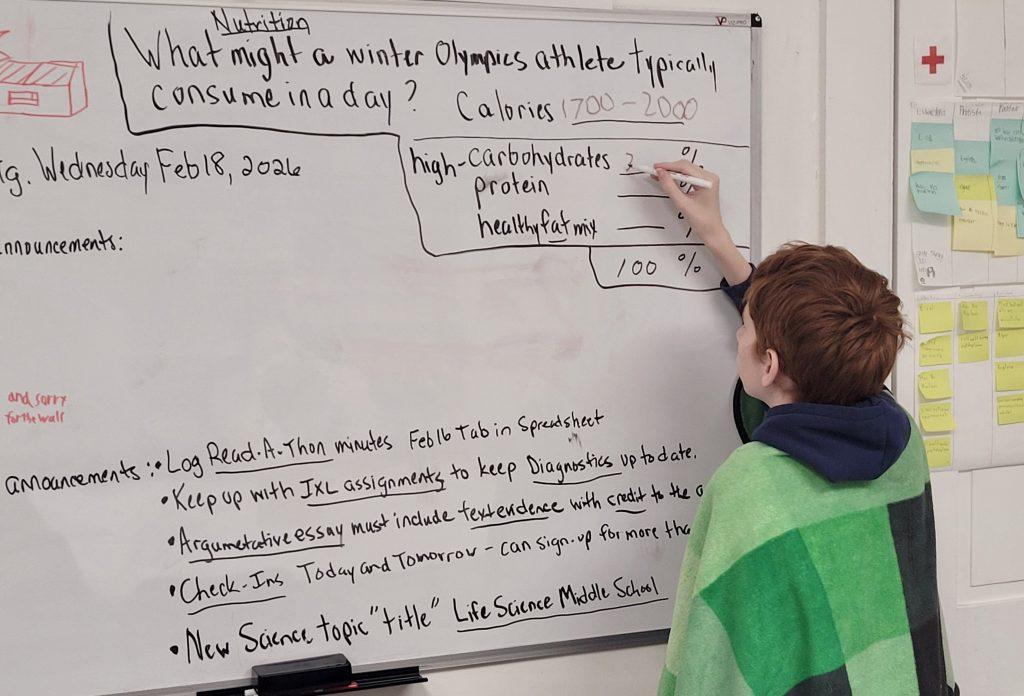 Nutrition
What might a winter Olympics athlete typically
consume in a day?
Calories 1700 - 2000
high-carbohydrates %
protein %
healthy fat mix %
100 %
g. Wednesday Feb 18, 2026
nnouncements:
and sorry
for the wall
announcements:
• Log Read-A-Thon minutes Feb 16 Tab in Spreadsheet
• Keep up with IXL assignments to keep Diagnostics up to date.
• Argumetative essay must include text evidence with credit to the a
• Check-Ins Today and Tomorrow - can sign-up for more tha
• New Science topic "title" Life Science Middle School